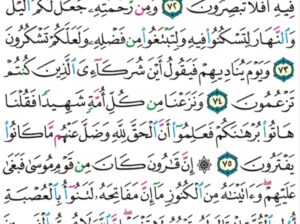 فِيهِ أَفَلَا تُبْصِرُونَ ٧٢ وَمِن رَّحْمَتِهِۦ جَعَلَ لَكُمُ ٱلَّيْلَ
وَٱلنَّهَارَ لِتَسْكُنُوا۟ فِيهِ وَلِتَبْتَغُوا۟ مِن فَضْلِهِۦ وَلَعَلَّكُمْ تَشْكُرُونَ
٧٣ وَيَوْمَ يُنَادِيهِمْ فَيَقُولُ أَيْنَ شُرَكَآءِىَ ٱلَّذِينَ كُنتُمْ
تَزْعُمُونَ ٧٤ وَنَزَعْنَا مِن كُلِّ أُمَّةٍ شَهِيدًا فَقُلْنَا
هَاتُوا۟ بُرْهَٰنَكُمْ فَعَلِمُوٓا۟ أَنَّ ٱلْحَقَّ لِلَّهِ وَضَلَّ عَنْهُم مَّا كَانُوا۟
يَفْتَرُونَ ٧٥ ۞ إِنَّ قَٰرُونَ كَانَ مِن قَوْمِ مُوسَىٰ فَبَغَىٰ
عَلَيْهِمْ وَءَاتَيْنَٰهُ مِنَ ٱلْكُنُوزِ مَآ إِنَّ مَفَاتِحَهُۥ لَتَنُوٓأُ بِٱلْعُصْبَةِ